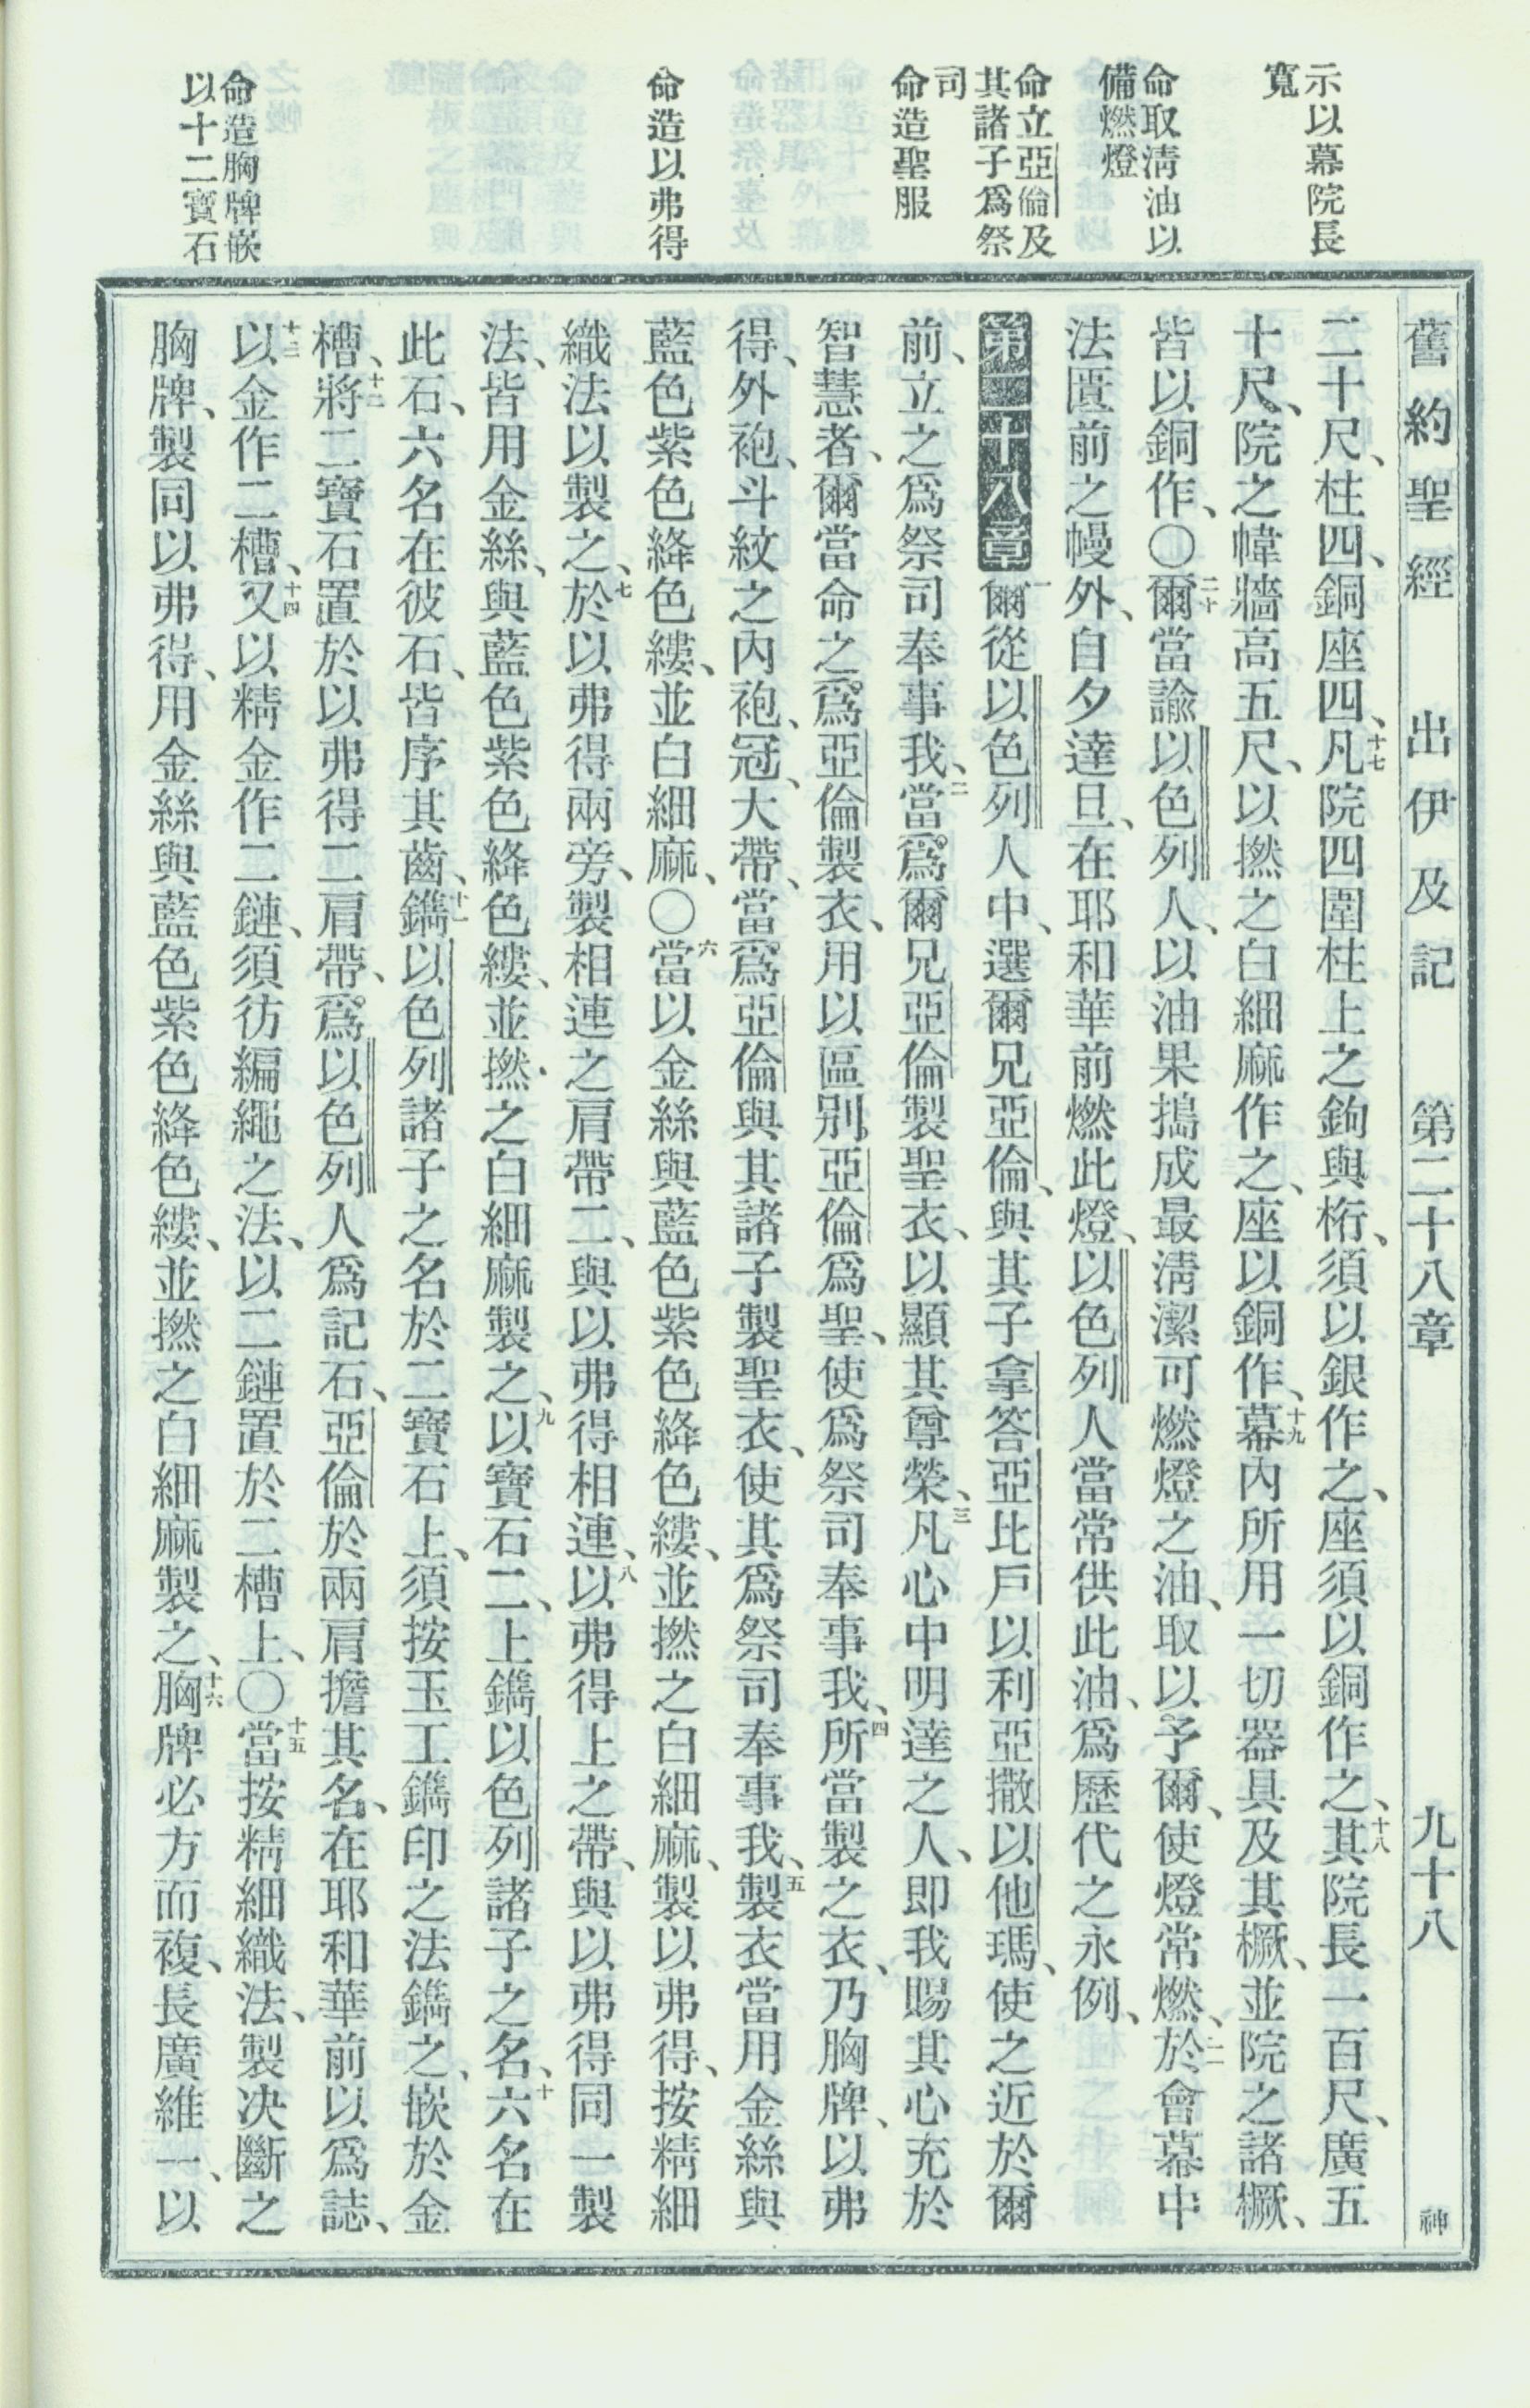 示以幕院長
寬
命取淸油以
備燃燈
命立亞倫及
其諸子爲祭
司
命造聖服
命造以弗得
命造胸牌嵌
以十二寶石
舊約聖經 出伊及記 第二十八章 九十八 神
二十尺、柱四、銅座四、十七凡院四圍柱上之鉤與桁、須以銀作之、座須以銅作之、十八其院長一百尺、廣五
十尺、院之幃牆高五尺、以撚之白細麻作之、座以銅作、十九幕內所用一切器具及其橛、並院之諸橛、
皆以銅作、〇二十爾當諭以色列人、以油果搗成最淸潔可燃燈之油、取以予爾、使燈常燃、二一於會幕中
法匱前之幔外、自夕達旦、在耶和華前燃此燈、以色列人當常供此油、爲歷代之永例、
第二十八章 一爾從以色列人中、選爾兄亞倫、與其子拿答亞比戶以利亞撒以他瑪、使之近於爾
前、立之爲祭司奉事我、二當爲爾兄亞倫製聖衣、以顯其尊榮、三凡心中明達之人、即我賜其心充於
智慧者、爾當命之爲亞倫製衣、用以區別亞倫爲聖、使爲祭司奉事我、四所當製之衣、乃胸牌、以弗
得、外袍、斗紋之內袍、冠、大帶、當爲亞倫與其諸子製聖衣、使其爲祭司奉事我、五製衣當用金絲與
藍色紫色絳色縷、並白細麻、〇六當以金絲與藍色紫色絳色縷、並撚之白細麻、製以弗得、按精細
織法以製之、七於以弗得兩旁、製相連之肩帶二、與以弗得相連、八以弗得上之帶、與以弗得同一製
法、皆用金絲、與藍色紫色絳色縷、並撚之白細麻製之、九以寶石二、上鐫以色列諸子之名、十六名在
此石、六名在彼石、皆序其齒、十一鐫以色列諸子之名於二寶石上、須按玉工鐫印之法鐫之、嵌於金
槽、十二將二寶石置於以弗得二肩帶、爲以色列人爲記石、亞倫於兩肩擔其名、在耶和華前以爲誌、
十三以金作二槽、十四又以精金作二鏈、須彷編繩之法、以二鏈置於二槽上、〇十五當按精細織法、製决斷之
胸牌、製同以弗得、用金絲與藍色紫色絳色縷、並撚之白細麻製之、十六胸牌必方而複、長廣維一、以